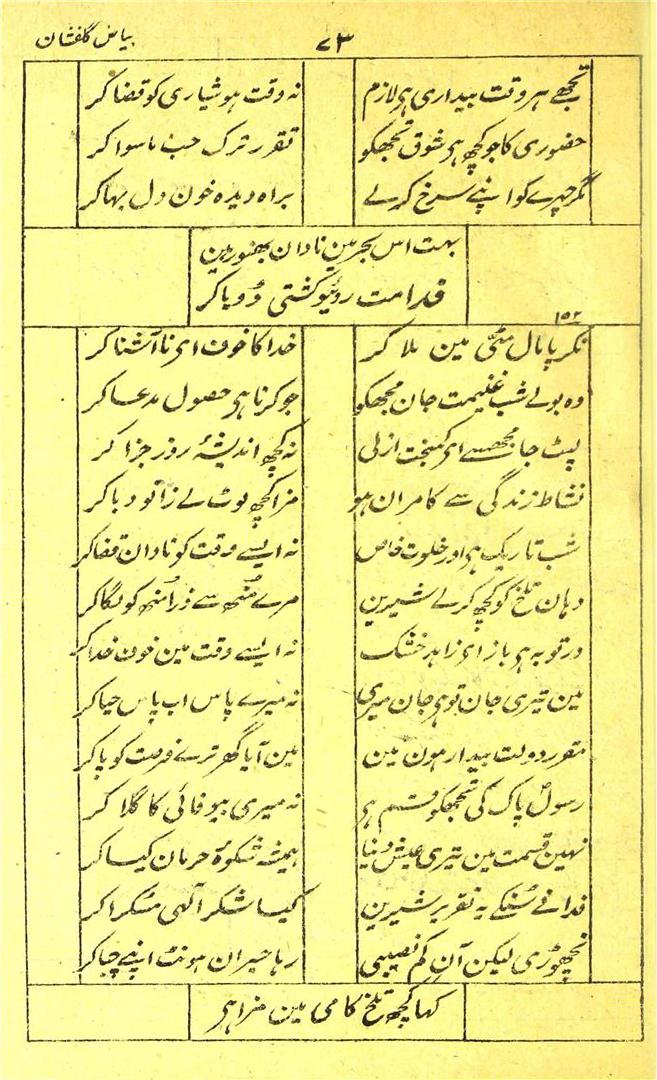 بیاض گلفشان
۷۳
تجھے ہر وقت بیداری ہی لازم نہ وقت ہوشیاری کو قضا کر
حضوری کا جو کچھ ہی شوق تجھکو تقرر ترک حب ما سوا کر
مگر چہرے کو اپنے سرخ کر لے براہ دیدہ خون دل بہا کر
بہت اس بحر مین نادان بھنور مین
فدا مت روئیو کشتی ڈوبا کر
۱۵۲
نکر پامال مٹی مین ملا کر خدا کا خوف ای نا آشنا کر
وہ بولے شب غنیمت جان مجھکو جو کرنا ہی حصول مدعا کر
لپٹ جا مجھسے ای کمبخت ازلی نہ کچھ اندیشۂ روز جزا کر
نشاط زندگی سے کامران ہو مزا کچھ لوٹ لے زانو دبا کر
شب تاریک ہی اور خلوت خاص نہ ایسے وقت کو نادان قضا کر
دہان تلخ کو کچھ کر لے شیرین مرے منھ سے ذرا منھ کو لگا کر
در توبہ ہی باز ای زاہد خشک نہ ایسے وقت مین خوف خدا کر
مین تیری جان تو ہی جان میری نہ میرے پاس اب پاس حیا کر
مقرر دولت بیدار ہون مین مین آیا گھر ترے فرصت کو پا کر
رسول پاک کی تجھکو قسم ہی نہ میری بیوفائی کا گلا کر
نہین قسمت مین تیری عیش دنیا ہمیشہ شکوۂ حرمان کیا کر
فدا نے سنکے یہ تقریر شیرین کیا شکر الٰہی مسکرا کر
نچھوڑی لیکن آن کم نصیبی رہا حیران ہونٹ اپنے چبا کر
کہا کچھ تلخ کامی مین مزا ہی